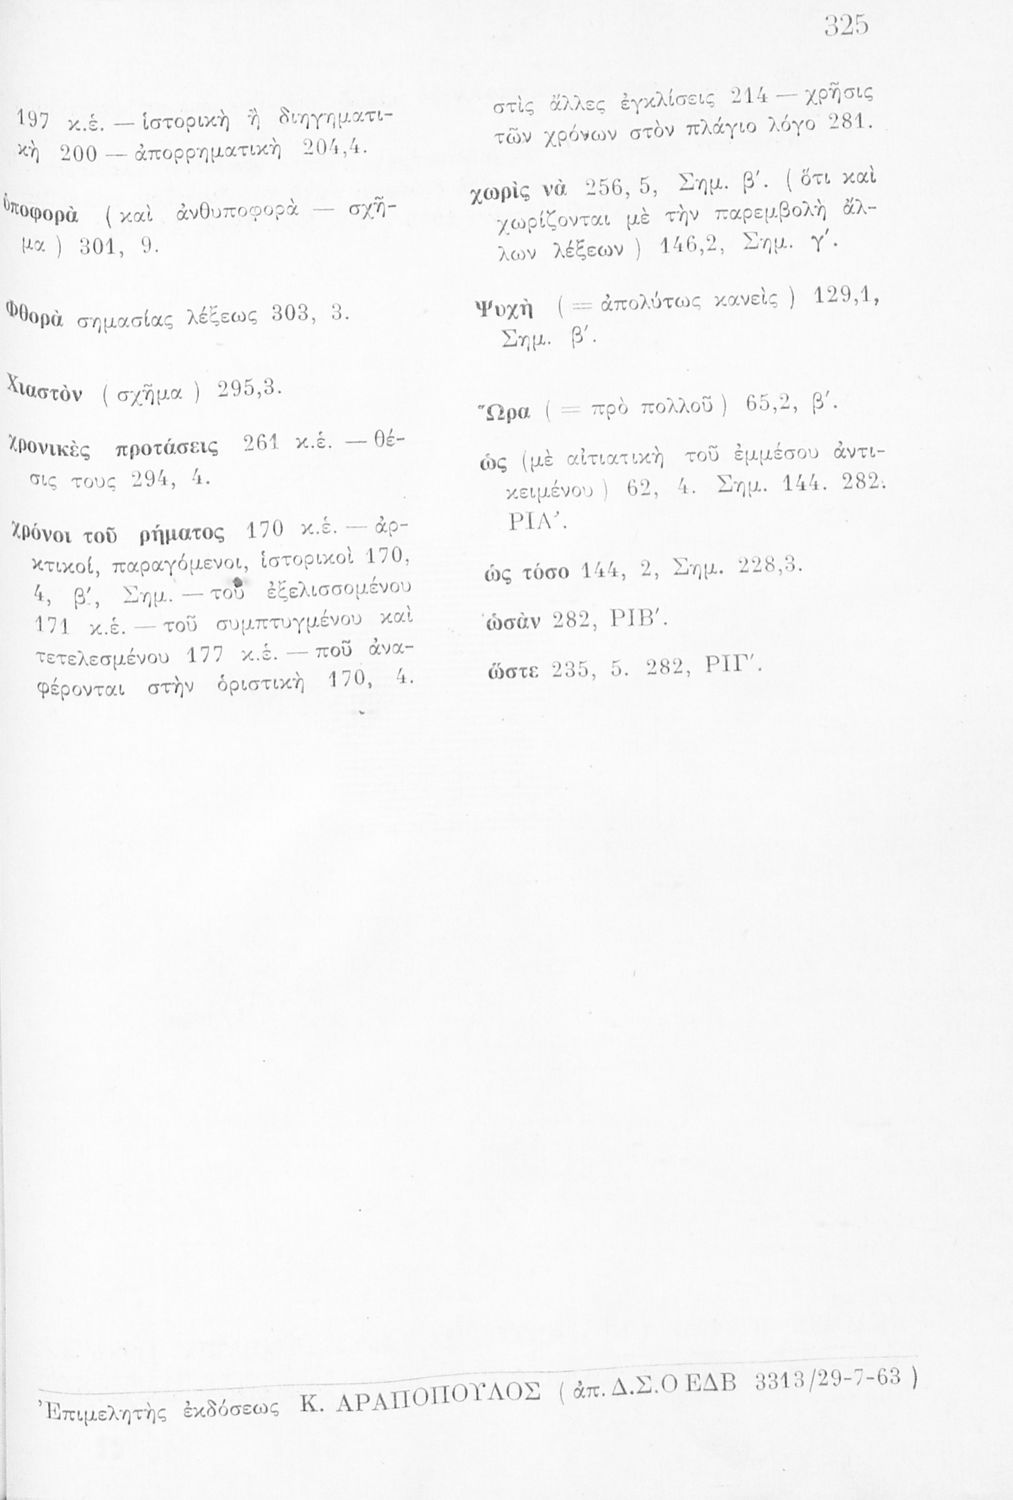 325
197 κ.ἑ. — ἱστορικὴ ἢ διηγηματι-
κὴ 200 — ἀπορρηματικὴ 204,4.
ὑποφορὰ ( καὶ ἀνθυποφορὰ — σχῆ-
μα ) 301, 9.
Φθορὰ σημασίας λέξεως 303, 3.
Χιαστὸν ( σχῆμα ) 295,3.
χρονικὲς προτάσεις 261 κ.ἑ. — θέ-
σις τους 294, 4.
χρόνοι τοῦ ρήματος 170 κ.ἑ. — ἀρ-
κτικοί, παραγόμενοι, ἱστορικοὶ 170,
4, β΄, Σημ. — τοῦ ἐξελισσομένου
171 κ.ἑ. — τοῦ συμπτυγμένου καὶ
τετελεσμένου 177 κ.ἑ. — ποῦ ἀνα-
φέρονται στὴν ὁριστικὴ 170, 4.
στὶς ἄλλες ἐγκλίσεις 214 — χρῆσις
τῶν χρόνων στὸν πλάγιο λόγο 281.
χωρὶς νὰ 256, 5, Σημ. β΄. ( ὅτι καὶ
χωρίζονται μὲ τὴν παρεμβολὴ ἄλ-
λων λέξεων ) 146,2, Σημ. γ΄.
Ψυχὴ ( = ἀπολύτως κανεὶς ) 129,1,
Σημ. β΄.
Ὥρα ( = πρὸ πολλοῦ ) 65,2, β΄.
ὡς (μὲ αἰτιατικὴ τοῦ ἐμμέσου ἀντι-
κειμένου ) 62, 4. Σημ. 144. 282.
ΡΙΑ΄.
ὡς τόσο 144, 2, Σημ. 228,3.
ὡσὰν 282, ΡΙΒ΄.
ὥστε 235, 5. 282, ΡΙΓ΄.
Ἐπιμελητὴς ἐκδόσεως Κ. ΑΡΑΠΟΠΟΥΛΟΣ ( ἀπ. Δ.Σ.Ο ΕΔΒ 3313/29-7-63 )